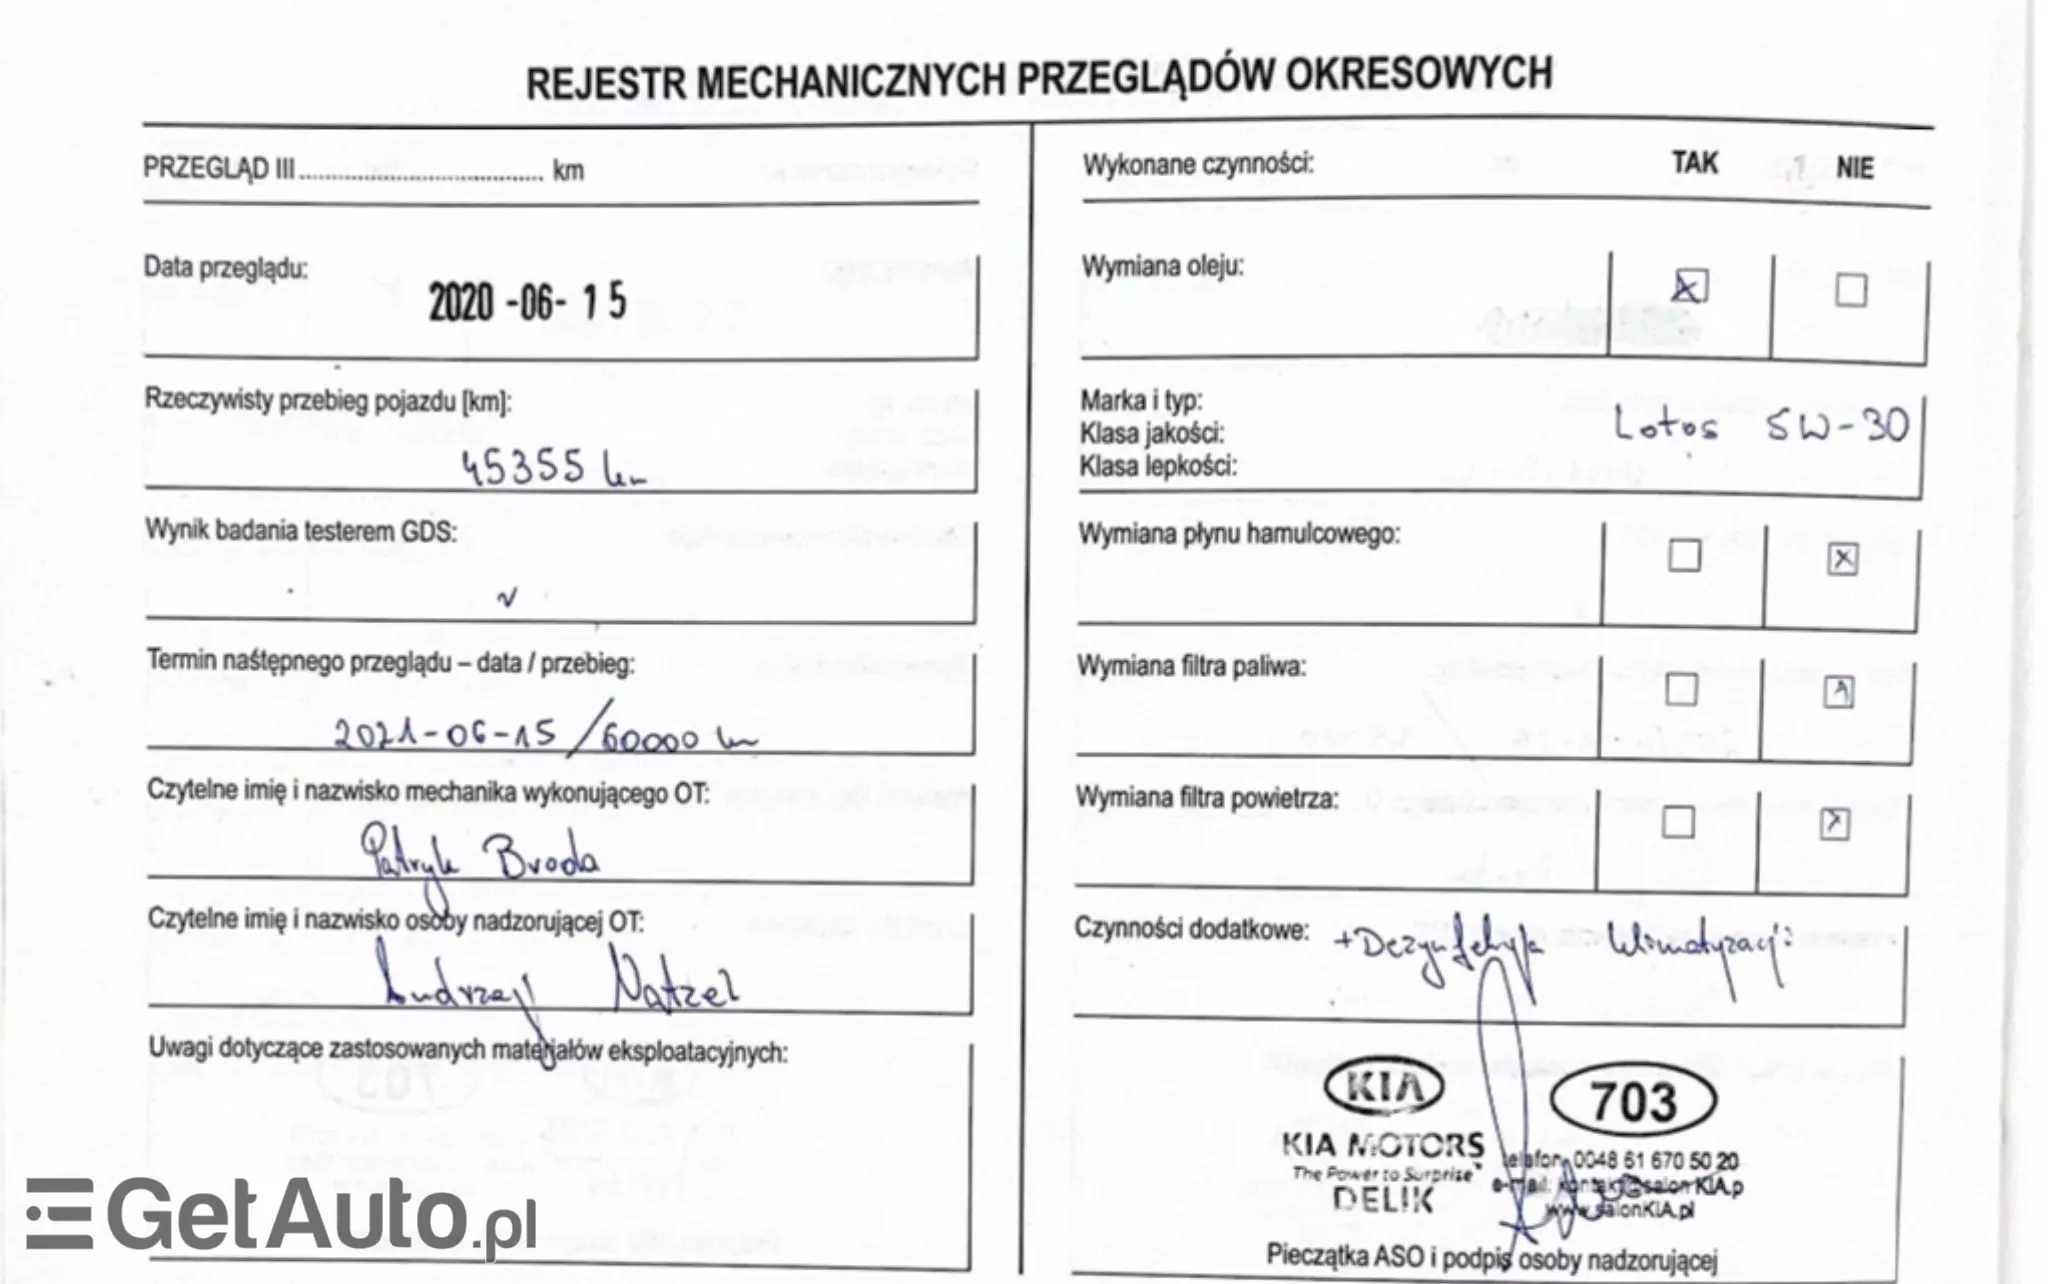 REJESTR MECHANICZNYCH PRZEGLĄDÓW OKRESOWYCH
PRZEGLĄD III.............................................. km
Data przeglądu:
2020 -06- 15
Rzeczywisty przebieg pojazdu [km]:
45355 km
Wynik badania testerem GDS:
Termin następnego przeglądu – data / przebieg:
2021-06-15 / 60000 km
Czytelne imię i nazwisko mechanika wykonującego OT:
Patryk Broda
Czytelne imię i nazwisko osoby nadzorującej OT:
Andrzej Natzel
Uwagi dotyczące zastosowanych materjałów eksploatacyjnych:
Wykonane czynności: TAK NIE
Wymiana oleju:
Marka i typ:
Klasa jakości:
Klasa lepkości:
Lotos 5W-30
Wymiana płynu hamulcowego:
Wymiana filtra paliwa:
Wymiana filtra powietrza:
Czynności dodatkowe: +Dezynfekcja klimatyzacji
KIA 703
KIA MOTORS
The Power to Surprise
DELIK
telefon 0048 61 670 50 20
e-mail: kontakt@salonKIA.p
www.salonKIA.pl
Pieczątka ASO i podpis osoby nadzorującej
GetAuto.pl